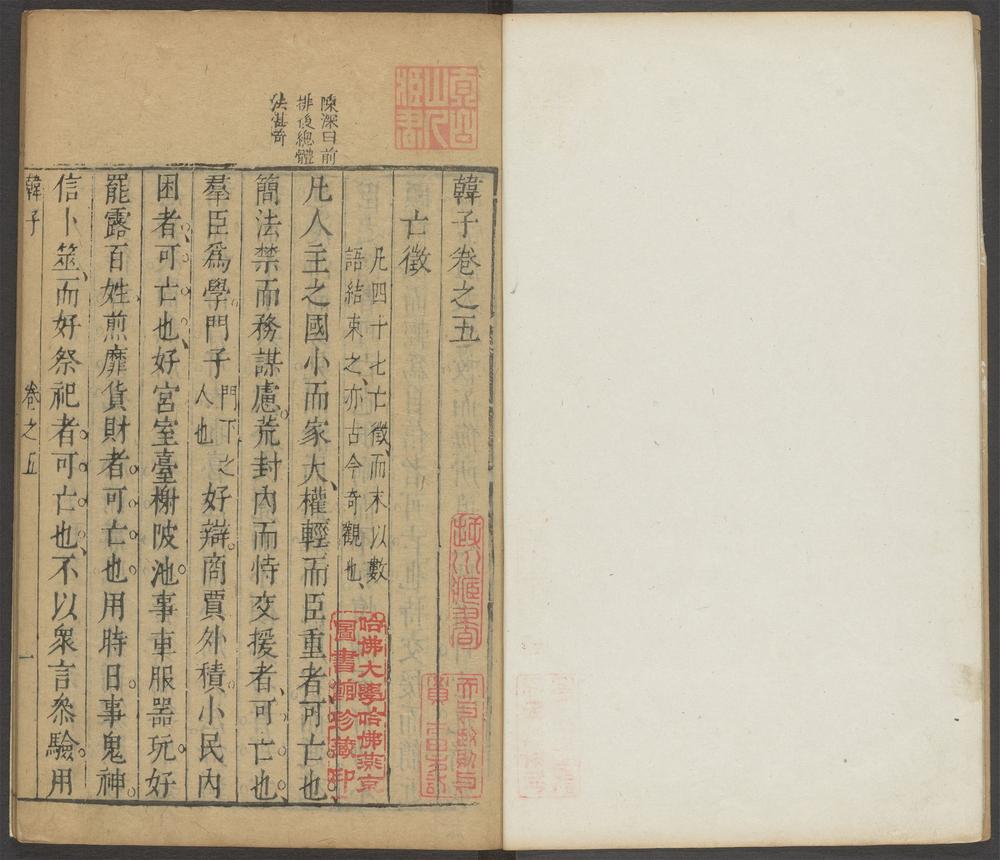 韓子卷之五
亡徵
凡四十七亡徵、而末以數
語結束之、亦古今奇觀也、
凡人主之國小而家大、權輕而臣重者、可亡也、
簡法禁而務謀慮。荒封內而恃交援者、可亡也、
羣臣爲學。門子門下之人也好辯。商賈外積。小民內
困者、可亡也、好宮室臺榭陂池。事車服器玩。好
罷露百姓、煎靡貨財者。可亡也。用時日。事鬼神。
信卜筮、而好祭祀者。可亡也、不以衆言叅驗。用
韓子
卷之五
一
陳深曰前
排後總體
法甚奇
哈佛大學哈佛燕京
圖書館珍藏印